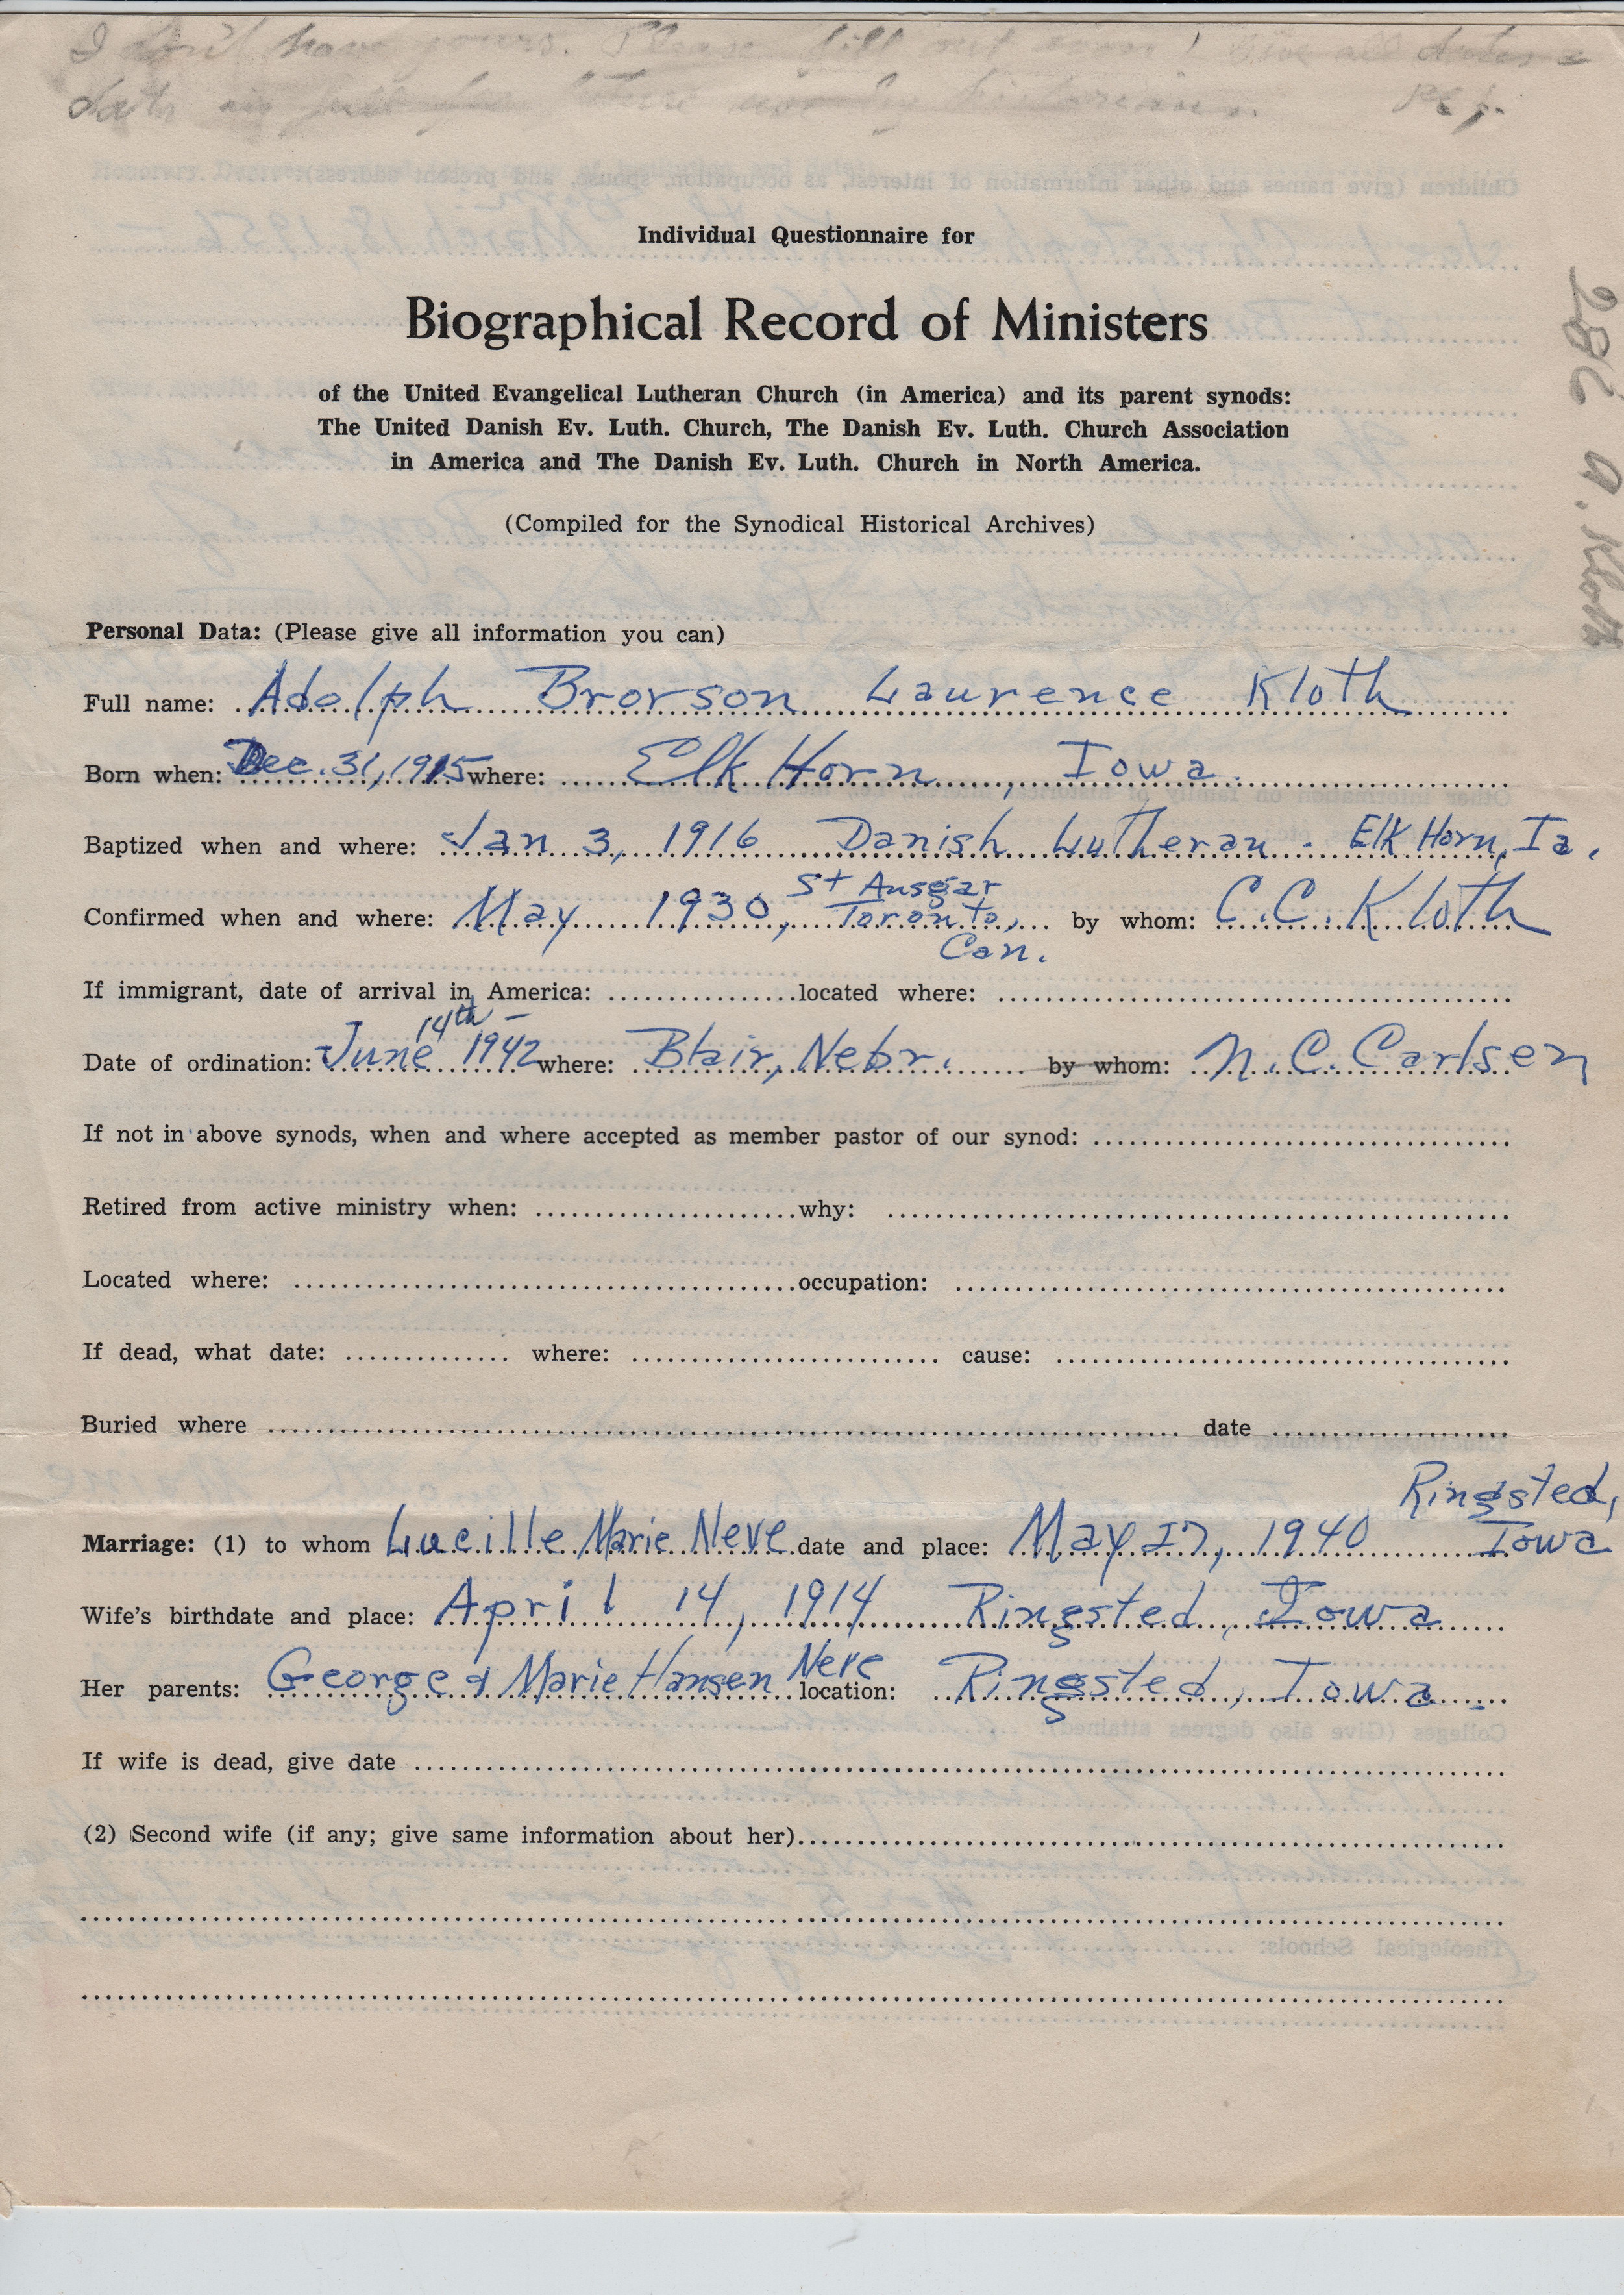 I don't have yours. Please fill out soon! Give all dates &
data in full for later use by historians.
Individual Questionnaire for
Biographical Record of Ministers
of the United Evangelical Lutheran Church (in America) and its parent synods:
The United Danish Ev. Luth. Church, The Danish Ev. Luth. Church Association
in America and The Danish Ev. Luth. Church in North America.
(Compiled for the Synodical Historical Archives)
286 A. Kloth
Personal Data: (Please give all information you can)
Full name: Adolph Brorson Laurence Kloth
Born when: Dec. 31, 1915 where: Elk Horn, Iowa.
Baptized when and where: Jan 3, 1916 Danish Lutheran - Elk Horn, Ia.
St Ansgar
Confirmed when and where: May 1930, Toronto, by whom: C.C. Kloth
Can.
If immigrant, date of arrival in America: located where:
14th -
Date of ordination: June 1942 where: Blair, Nebr. by whom: N. C. Carlsen
If not in above synods, when and where accepted as member pastor of our synod:
Retired from active ministry when: why:
Located where: occupation:
If dead, what date: where: cause:
Buried where date
Ringsted,
Marriage: (1) to whom Lucille Marie Neve date and place: May 27, 1940 Iowa
Wife's birthdate and place: April 14, 1914 Ringsted, Iowa
Her parents: George & Marie Hansen Neve location: Ringsted, Iowa.
If wife is dead, give date
(2) Second wife (if any; give same information about her)